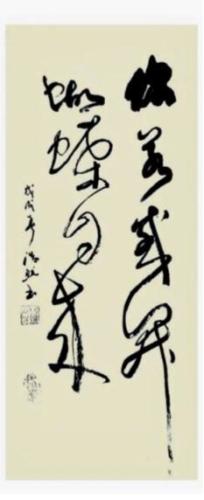 你若盛开
蝴蝶自来
戊戌年浩然书